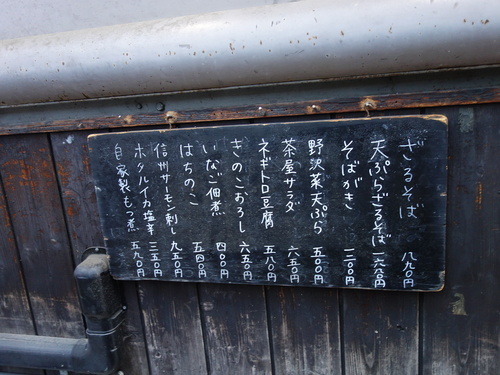 ざるそば 八八〇円
天ぷらざるそば 一六八〇円
そばがき 一二〇〇円
野沢菜天ぷら 五〇〇円
茶屋サラダ 六五〇円
ネギトロ豆腐 五八〇円
きのこおろし 六五〇円
いなご佃煮 四〇〇円
はちのこ 五四〇円
信州サーモン刺し 九五〇円
ホタルイカ塩辛 三五〇円
自家製もつ煮 五九〇円